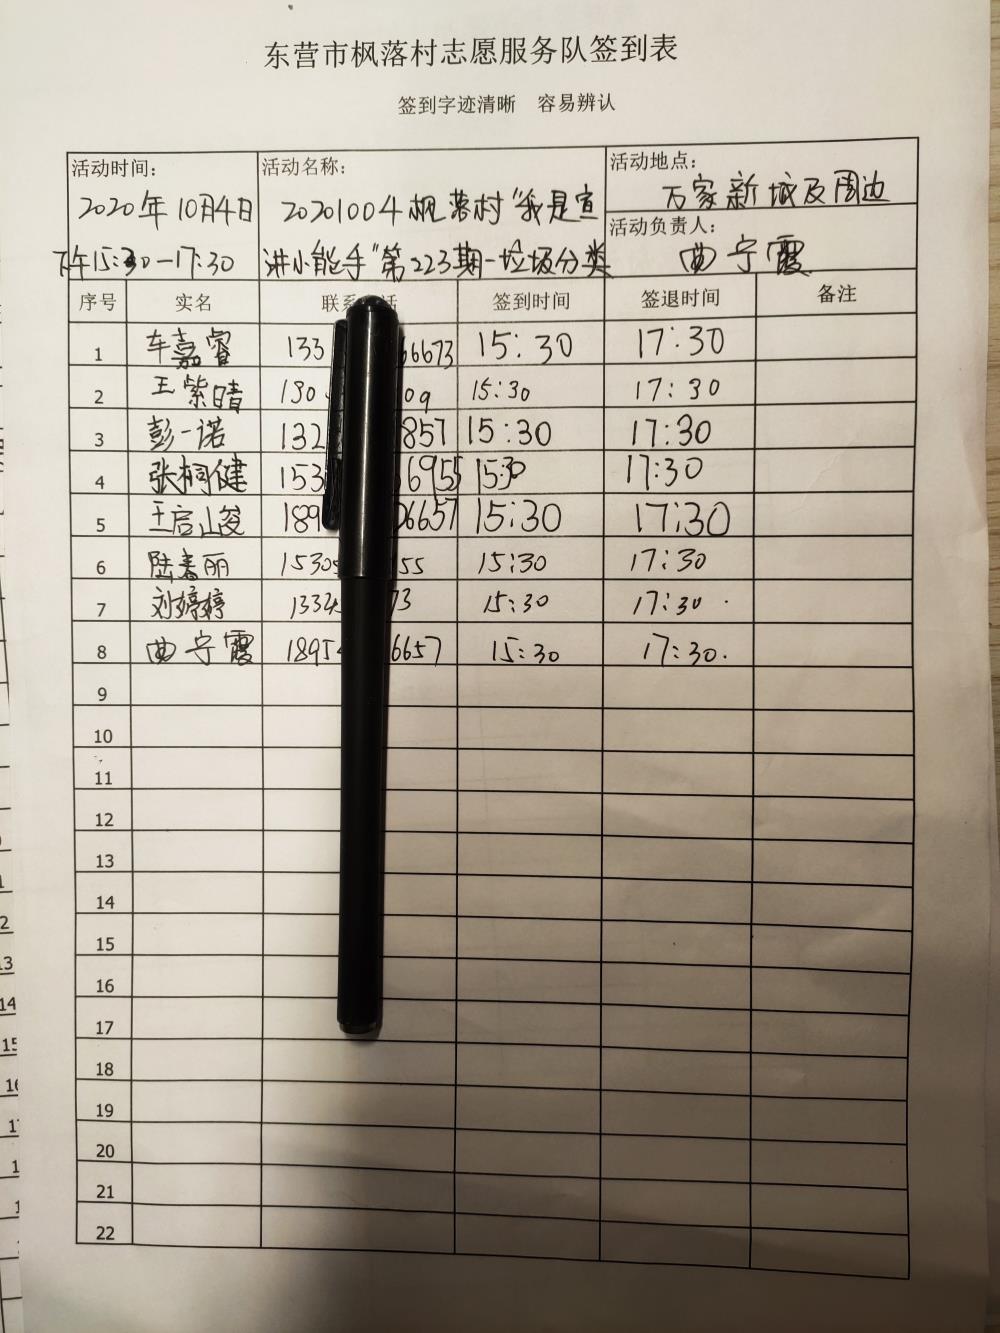 东营市枫落村志愿服务队签到表
签到字迹清晰 容易辨认
活动时间： 活动名称： 活动地点：
2020年10月4日 20201004枫落村"我是宣 万家新城及周边
下午15:30—17:30 讲小能手"第223期-垃圾分类 活动负责人： 曲宁霞
序号 实名 联 话 签到时间 签退时间 备注
1 车嘉睿 133 66673 15:30 17:30
2 王紫晴 130 09 15:30 17:30
3 彭一诺 132 857 15:30 17:30
4 张桐健 153 6955 15:30 17:30
5 王启山 189 06657 15:30 17:30
6 陆春丽 15305 55 15:30 17:30
7 刘婷婷 1334 73 15:30 17:30
8 曲宁霞 1895 6657 15:30 17:30.
9
10
11
12
13
14
15
16
17
18
19
20
21
22